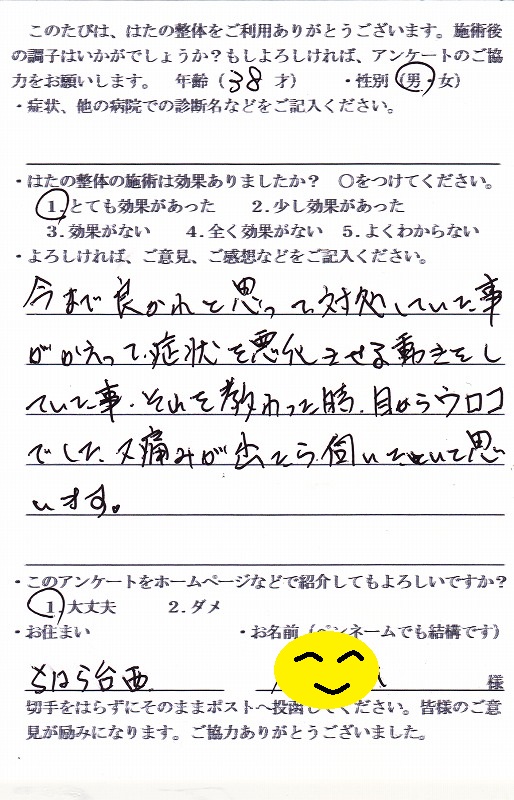 このたびは、はたの整体をご利用ありがとうございます。施術後
の調子はいかがでしょうか？もしよろしければ、アンケートのご協
力をお願いします。　年齢（38 才）　・性別（男・女）
・症状、他の病院での診断名などをご記入ください。
・はたの整体の施術は効果ありましたか？　○をつけてください。
1.とても効果があった　2.少し効果があった
3.効果がない　4.全く効果がない　5.よくわからない
・よろしければ、ご意見、ご感想などをご記入ください。
今まで良かれと思って対処していた事
がかえって、症状を悪化させる動きをし
ていた事、それを教わった時、目からウロコ
でした。又痛みが出たら伺いたいと思
います。
・このアンケートをホームページなどで紹介してもよろしいですか？
1.大丈夫　2.ダメ
・お住まい　・お名前（ペンネームでも結構です）
ちはら台西　様
切手をはらずにそのままポストへ投函してください。皆様のご意
見が励みになります。ご協力ありがとうございました。